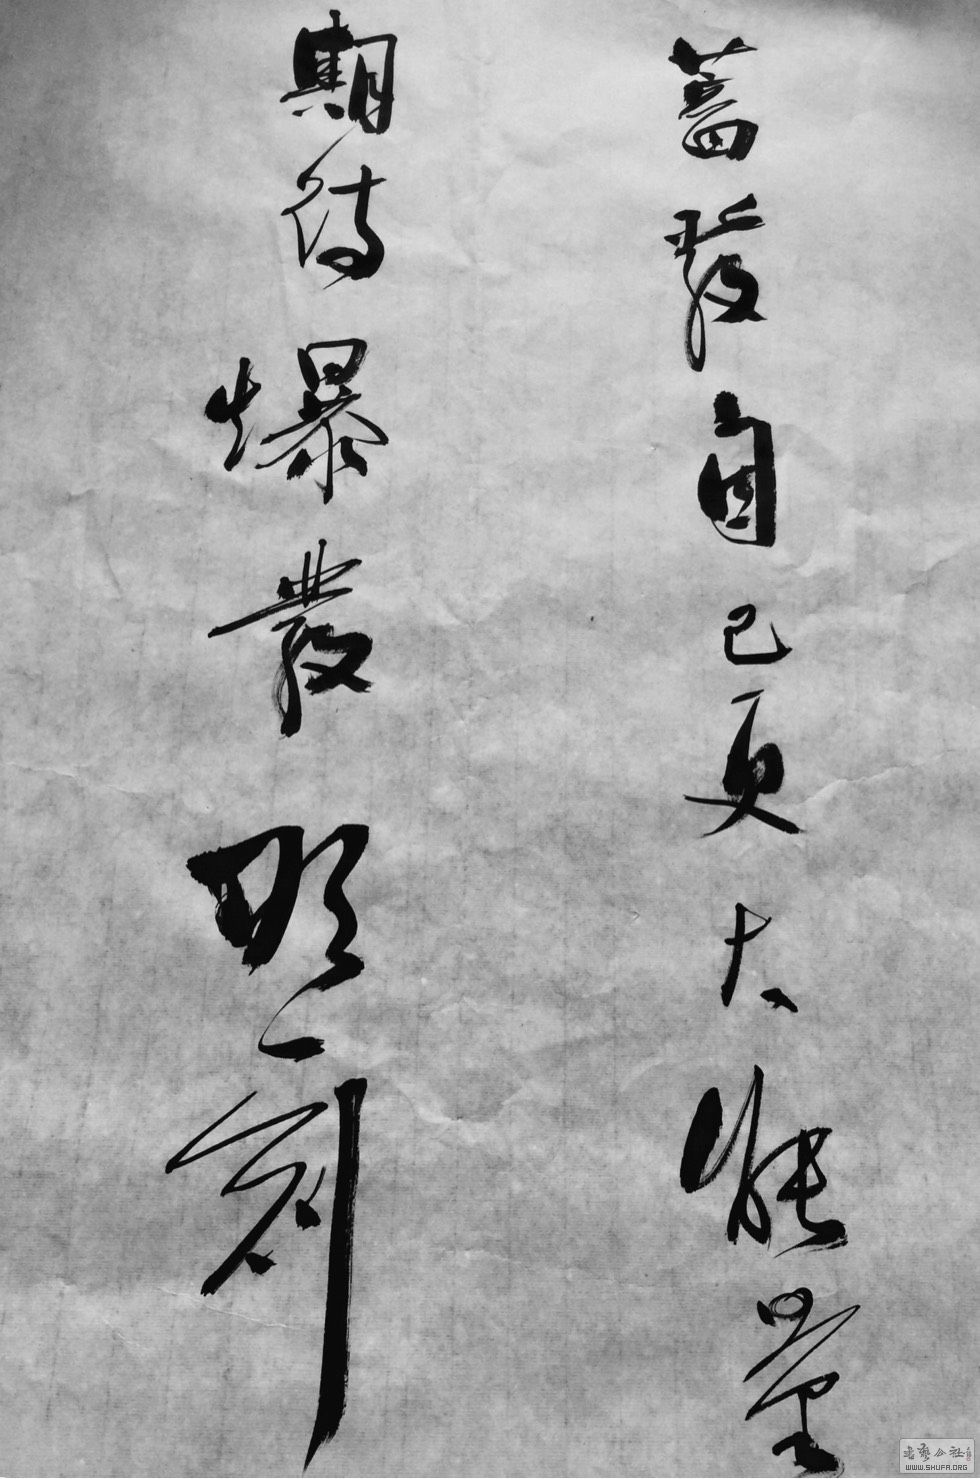 蓄發自己更大能量
期待爆發那一刻
書藝公社
WWW.SHUFA.ORG